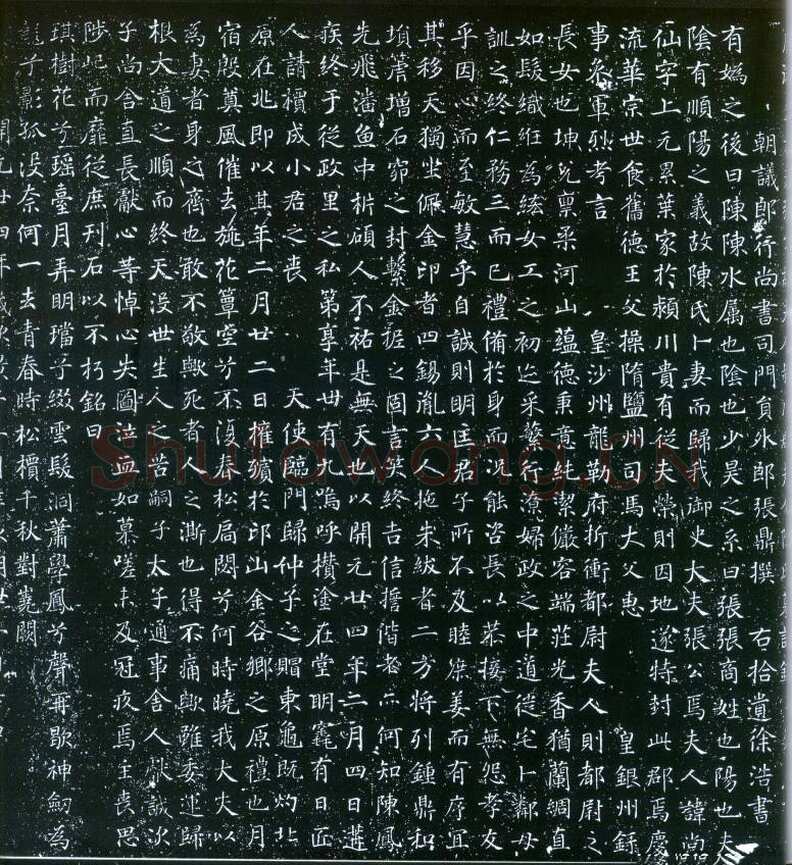 朝議郎行尚書司門員外郎張鼎撰 右拾遺徐浩書
有媯之後曰陳陳水屬也陰也少昊之系曰張張商姓也陽也夫
陰有順陽之義故陳氏卜妻而歸我御史大夫張公焉夫人諱尚
仙字上元累葉家於潁川貴有從夫榮則因地 遂特封此郡焉慶
流華宗世食舊德王父操隋鹽州司馬大父惠 皇銀州錄
事參軍烈考言 皇沙州龍勒府折衝都尉夫人則都尉之
長女也坤兒稟柔河山蘊德秉章純潔儼容端莊光香猶蘭綢直
如髮織紝為絃女工之初迄采蘩行潦婦政之中道從宅卜鄰母
訓之終仁務三而已禮備於身而況能咨長以恭接下無怨孝友
乎因心而至敏慧乎自誠則明匡君子所不及睦庶姜而有序宜
其移天獨坐佩金印者四錫胤六人拖朱紱者二方將列鍾鼎和
塤篪增石窌之封繫金柅之固言笑終吉信誓偕老而何知陳鳳
先飛潘魚中析碩人不祐是無天也以開元廿四年二月四日遘
疾終于從政里之私第享年卌有九嗚呼欑塗在堂明竁有日匠
人請櫝成小君之喪 天使臨門歸仲子之賵東龜既灼北
原在北即以其年二月廿二日權殯於邙山金谷鄉之原禮也月
宿殷奠風催去旐花簟空兮不復春松扃閟兮何時曉我大夫以
為妻者身之齊也敢不敬歟死者人之澌也得不痛歟雖委運歸
根大道之順而終天沒世生人之苦嗣子太子通事舍人獻誠次
子尚舍直長獻心等悼心失圖泣血如慕嗟未及冠疚焉主喪思
陟屺而靡從庶刊石以不朽銘曰
琪樹花兮瑤臺月弄明璫兮綴雲髮洞蕭學鳳兮聲再歇神劒為
龍兮影孤没奈何一去青春時松檟千秋對嵩闕
開元廿四年歲次
Shufawang.CN